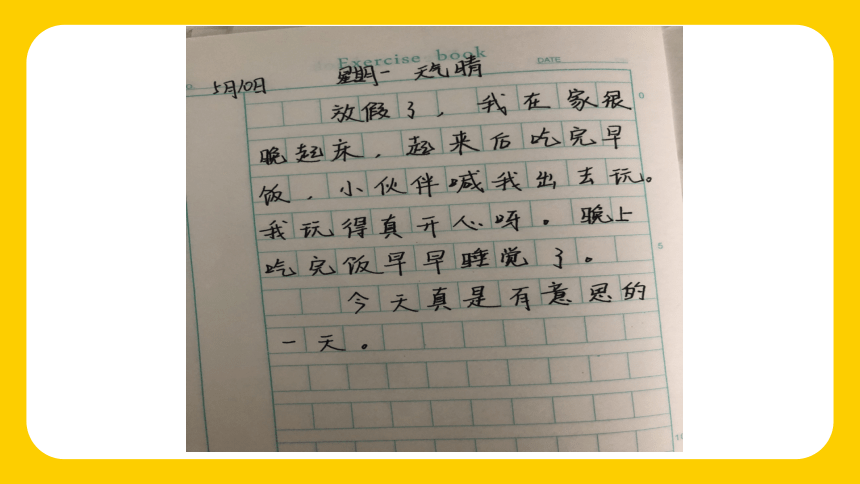 Exercise book
DATE
5月10日 星期一 天气晴
放假了，我在家很
晚起床，起来后吃完早
饭，小伙伴喊我出去玩。
我玩得真开心呀。晚上
吃完饭早早睡觉了。
今天真是有意思的
一天。
0
5